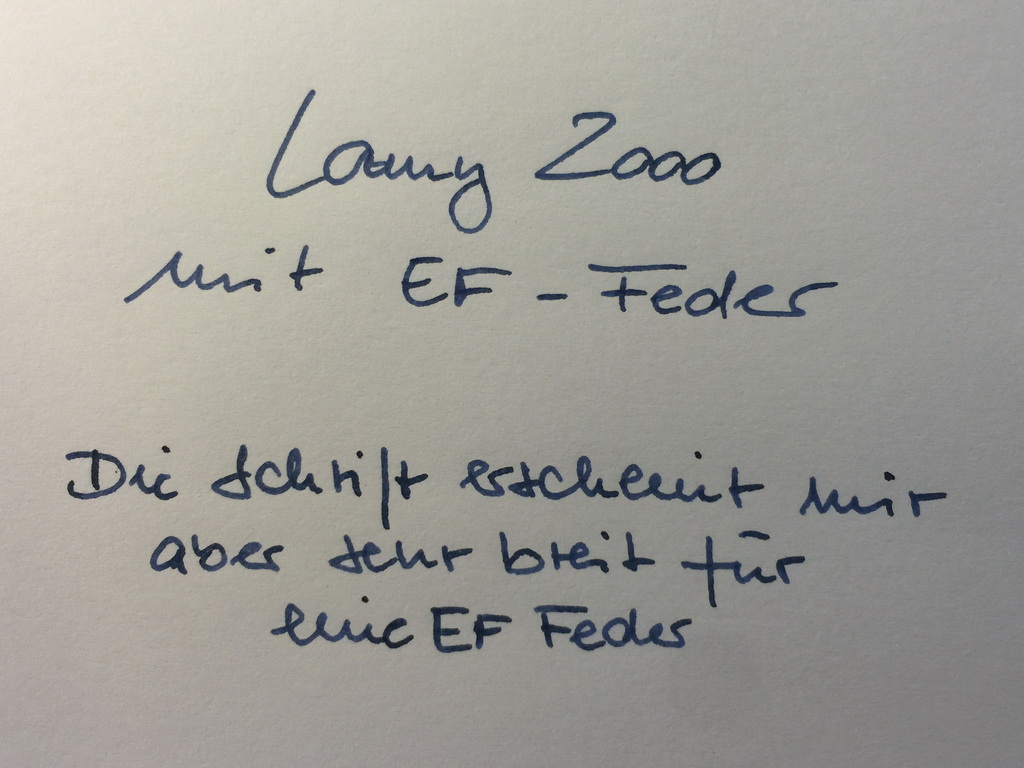 Lamy 2000
mit EF - Feder
Die Schrift erscheint mir
aber sehr breit für
eine EF Feder